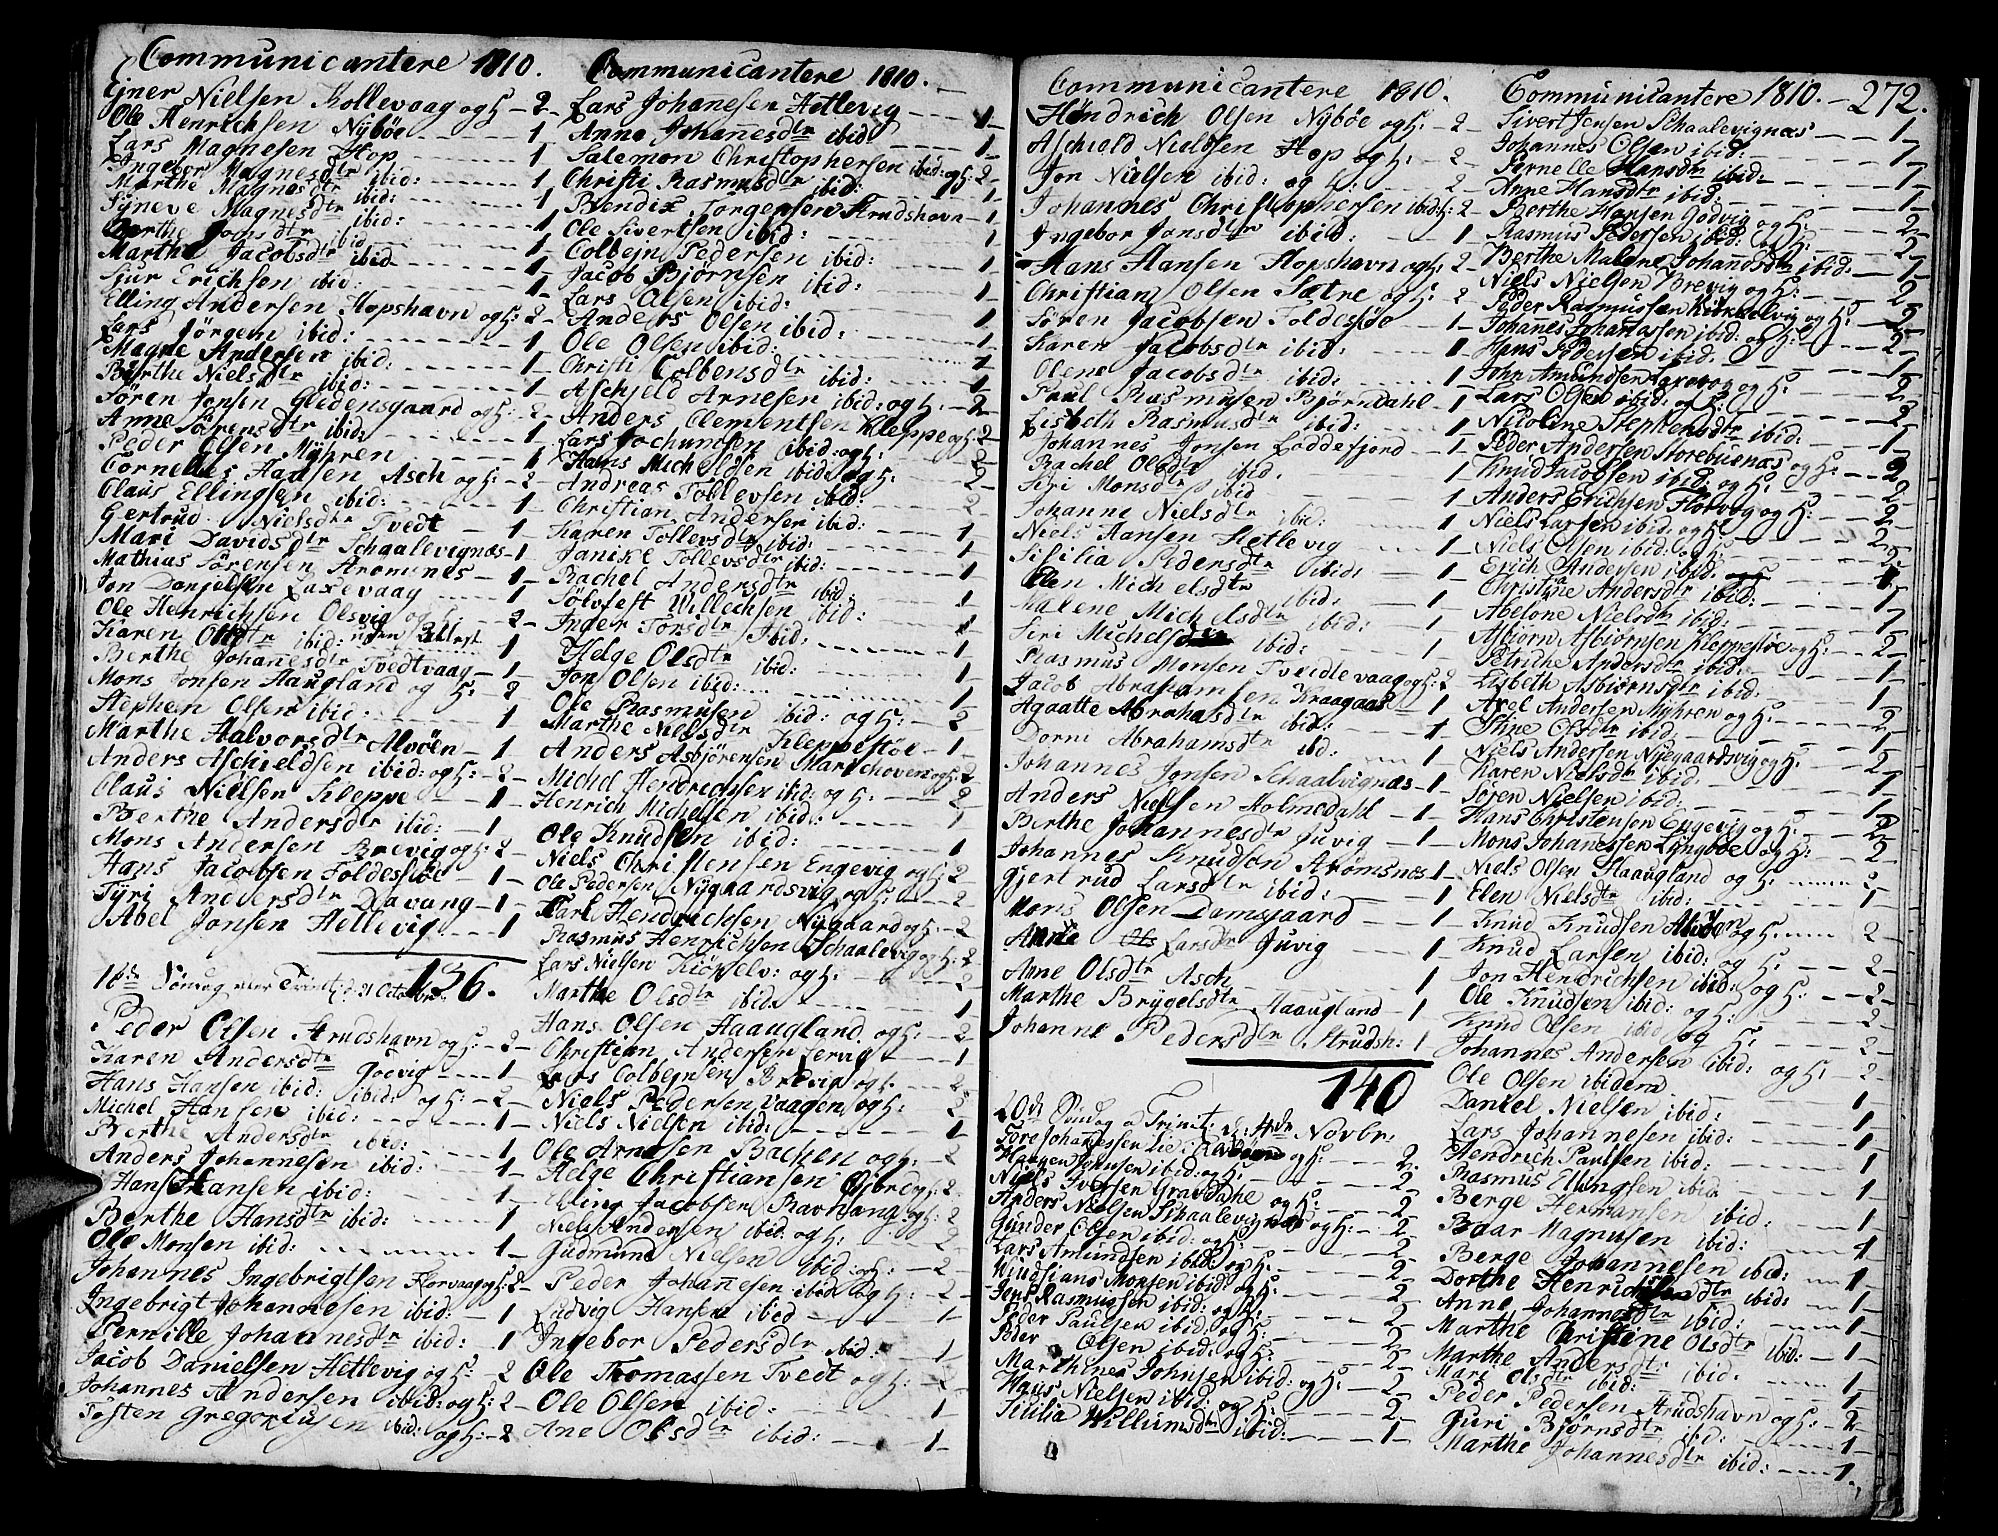 Communicantere 1810.
Ejner Nielsen Kollevaag og H: - 2
Ole Henrichsen Nyböe - 1
Lars Magnesen Hop - 1
Ingebor Magnesdtr ibid: - 1
Marthe Magnesdtr ibid: - 1
Syneve Magnesdtr ibid: - 1
Berthe Jonsdtr ibid - 1
Marthe Jacobsdtr ibid - 1
Siur Erichsen ibid: - 1
Elling Andersen Hopshavn og H: 2
Lars Jörgens ibid: - 1
Magne Andersen ibid: - 1
Berthe Nielsdtr ibid: - 1
Sören Jonsen Gledensgaard og H: - 2
Anne Sörensdtr ibid: - 1
Peder Olsen Myhren - 1
Cornelius Hansen Asch og H: - 2
Claus Ellingsen ibid: - 1
Gertrud Nielsdtr Tvedt - 1
Mari Davidsdtr Schaalevignæs - 1
Mathias Sörensen Strömsnes - 1
Jon Danjelsen Laxevaag - 1
Ole Henrichsen Olsvig og H: - 2
Karen Olsdtr ibid:
Berthe Johanesdtr Tvedtvaag - 1
Mons Jonsen Haugland og H: 2
Stephen Olsen ibid: - 1
Marthe Halvorsdtr Alvöen - 1
Anders Aschieldsen ibid: og H: - 2
Claus Nielsen Kleppe - 1
Berthe Andersdtr ibid: - 1
Mons Andersen Brevig og H: 2
Hans Jacobsen Foldesöe - 1
Syri Andersdtr Davang - 1
Abel Jonsen Hellevig - 1
136.
18de Söndag efter Trinit: d: 21 Octobr
Peder Olsen Strudshavn og H: - 2
Karen Andersdtr Goevig - 1
Hans Hansen ibid: ibid: og H: - 2
Michel Hansen ibid: - 1
Berthe Andersdtr ibid: - 1
Anders Johannesen ibid: - 1
Hans Hansen ibid: - 1
Berthe Hansdtr ibid: - 1
Ole Monsen ibid: - 1
Johannes Ingebrigtsen Florvaag og H: 2
Ingebrigt Johannesen ibid: - 1
Pernille Johannesdtr ibid: 1
Jacob Danielsen Hetlevig og H: 2
Johannes Andersen ibid: og H: 2
Tosten Gregoriusen ibid: og H: - 2
Communicantere 1810.
Lars Johanesen Hetlevig - 1
Anne Johanesdtr ibid: - 1
Salemon Christophersen ibid: og H: 2
Christi Rasmusdtr ibid: - 1
Bendix Torgersen Strudshavn - 1
Ole Sivertsen ibid: - 1
Colbejn Pedersen ibid: - 1
Jacob Björnsen ibid: - 1
Lars Olsen ibid: - 1
Anders Olsen ibid: - 1
Ole Olsen ibid: - 1
Christi Colbensdtr ibid: - 1
Aschjeld Arnesen ibid: og H: - 2
Anders Clementsen Kleppe og H: 2
Lars Jochumsen ibid: og H: - 2
Hans Michelsen ibid: og H: - 2
Andreas Tollevsen ibid:
Christian Andersen ibid: - 1
Karen Tollevsdtr ibid: - 1
Janike Tollevsdtr ibid: - 1
Rachel Andersdtr ibid: - 1
Sölvfest Willechsen ibid: - 1
Inger Torsdtr ibid: - 1
Helge Olsdtr ibid: - 1
Jon Olsen ibid: - 1
Ole Rasmusen ibid: og H: - 2
Marthe Nielsdtr Kleppestöe - 1
Anders Asbjörensen Marschoven og H: 2
Michel Hendrichsen ibid: og H: - 2
Henrich Michelsen ibid: - 1
Ole Knudsen ibid: - 1
Niels Christensen Engevig og H: 2
Ole Pedersen Nygaardsvig og H: - 2
Carl Hendrichsen Nygaard og H: - 2
Rasmus Henrichsen Schaalevig og H: - 2
Lars Nielsen Kiöpelv: og H: - 2
Marthe Olsdtr ibid: - 1
Hans Olsen Haaugland og H: - 2
Christian Andersen Lervig - 1
Lars Colbejnsen Brevig og H: - 2
Niels Pedersen Vaagen og H: - 2
Niels Nielsen ibid: - 1
Ole Arnesen Bachen og H: - 2
Helge Christiansen Ojbre og H: 2
Elling Jacobsen Ravnang og H: 2
Niels Andersen ibid: og H: - 2
Gudmund Nielsen ibid: og H: - 2
Peder Johanesen ibid og H: - 2
Ludvig Hansen ibid - 1
Ingebor Pedersdtr ibid: - 1
Ole Thomassen Tvedt og H: - 2
Ole Olsen ibid: - 1
Ane Olsdtr ibid: - 1
Communicantere 1810.
Hendrich Olsen Nyböe og H: - 2
Aschield Nielssen Hop og H: - 2
Jon Nielsen ibid: og H: - 2
Johannes Christophersen ibid: H: 2
Ingebor Jonsdtr ibid: - 1
Hans Hansen Hopshavn og H: 2
Christian Olsen Sætre og H: - 2
Sören Jacobsen Foldesöe - 1
Karen Jacobsdtr ibid: - 1
Olene Jacobsdtr ibid: - 1
Poul Rasmusen Bjørndahl - 1
Lisbeth Rasmusdtr ibid: - 1
Johannes Jonsen Loddefjord - 1
Rachel Olsdtr ibid. - 1
Siri Monsdtr ibid - 1
Johanne Nielsdtr ibid: - 1
Niels Hansen Hetlevig - 1
Sisilia Pedersdtr ibid: - 1
Elen Michelsdtr ibid: - 1
Malene Michelsdtr ibid: - 1
Siri Michels ibid: - 1
Rasmus Monsen Tveidtevaag og H: 2
Jacob Abrahamsen Kraagaas - 1
Agaatte Abrahasdtr ibid: - 1
Dorni Abrahamsdtr ibd: - 1
Johannes Jonsen Schaalvignæs - 1
Anders Nielsen Holmedahl - 1
Berthe Johannesdtr Juvig - 1
Johannes Knudsen Strömsnæs 1
Gjertrud Larsdtr ibid: - 1
Mons Olsen Damsgaard - 1
Anne Larsdtr Juvig - 1
Anne Olsdtr Asch - 1
Marthe Brygelsdtr Haaugland - 1
Johanne Pedersdtr Strudsh: 1
140
20de Söndag e Trinit: d: 4de Novbr:
Tore Johannessen og H: - 2
Haagen Johnsen ibid: og H: - 2
Niels Iversen Gravdahl og H: - 2
Anders Nielsen Skaalevignæs og H: - 2
Gunder Olsen ibid: og H: - 2
Lars Amundsen ibid: og H: - 2
Monsen ibid: og H: - 2
Jens Rasmussen ibid: og H: - 2
Peder Paulsen ibid: og H: - 2
Peder Olsen ibid: og H: - 2
Marthines Johnsen ibid: og H: - 2
Hans Nielsen ibid: og H: - 2
Sicilia Willumsdtr ibid: - 1
Communicantere 1810. - 272.
Sivert Jensen Schaalevignæs - 1
Johannes Olsen ibid: - 1
Pernelle Hansdtr ibid: - 1
Anne Hansdtr ibid: - 1
Berthe Hansen Godvig og H: - 2
Rasmus Pedersen ibid: og H: - 2
Berthe Malene Johannsdtr ibid: - 1
Niels Nielsen Brevig og H: - 2
Peder Rasmussen og H: - 2
Johanes Johannssen ibid: og H: - 2
Hans Pedersen ibid: - 1
John Amundsen Laxevog og H: - 2
Lars Olsen ibid: og H: - 2
Nicoline Stephensdtr ibid: - 1
Peder Andersen Storebuenæs og H: - 2
Knud Jacobsen ibid: og H: - 2
Anders Erichsen Florvog og H: - 2
Niels Larsen ibid: og H: - 2
Niels Olsen ibid: og H: - 2
Erich Andersen ibid: - 1
Christina Andersdtr ibid: - 1
Abelone Nielsdtr ibid: - 1
Asbjörn Asbjörnsen Kleppestöe og H: - 2
Petrithe Andersdtr ibid: - 1
Lisbeth Asbiörnsdtr ibid: - 1
Axel Andersen Myhren og H: - 2
Stine Olsdtr ibid: - 1
Niels Andersen Nygaardsvig og H: - 2
Karen Nielsdtr ibid: - 1
Sören Nielsen ibid: - 1
Hans Christensen Engevig og H: - 2
Mons Johanessen Lyngböe og H: - 2
Niels Olsen Haaugland og H: - 2
Elen Nielsdtr ibid: - 1
Knud Knudsen Alvöen og H: - 2
Knud Larsen ibid: og H: - 2
Jon Hendrichsen ibid: og H: - 2
Ole Knudsen ibid: og H: - 2
Knud Olsen ibid og H: - 2
Johannes Andersen ibid: og H: - 2
Ole Olsen ibidem - 1
Daniel Nielsen ibid: - 1
Lars Johannesen ibid: - 1
Hendrich Paulsen ibid: - 1
Rasmus Ellingsen ibid: - 1
Berge Hermansen ibid: - 1
Baar Magnusen ibid: - 1
Berge Johannesen ibid: - 1
Dorthe Henrichsdtr ibid: - 1
Anne Johannesdtr ibid: - 1
Marthe Christine Olsdtr ibid: - 1
Marthe Andersdtr ibid: - 1
Mari Olsdtr ibid: - 1
Peder Pedersen Strudshavn og H: - 2
Guri Björnsdtr ibid: - 1
Marthe Johannesdtr ibid: - 1